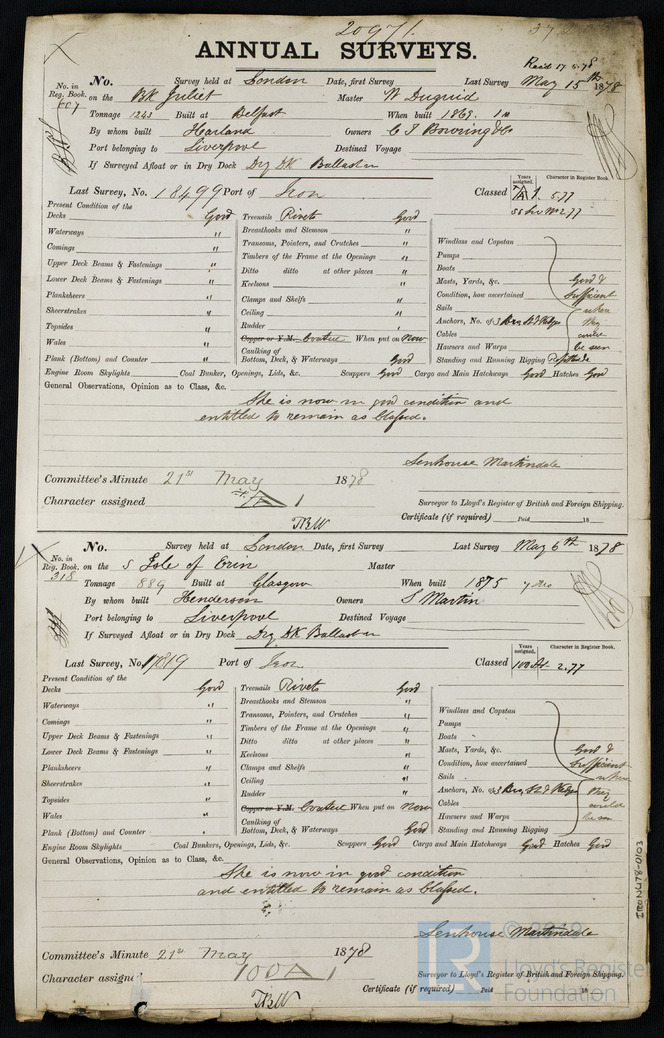 20971.
ANNUAL SURVEYS.
Recd 17.5.78
No. in Reg. Book. No. Survey held at London Date, first Survey Last Survey May 15th 1878
607 on the Bk Juliet Master W Duguid
Tonnage 1243 Built at Belfast When built 1869.
By whom built Harland Owners C T Bowring & Co
Port belonging to Liverpool Destined Voyage
If Surveyed Afloat or in Dry Dock Dry Dk Ballast
Last Survey, No. 18499 Port of Iron Classed Years assigned. Character in Register Book.
1. 5.77
Present Condition of the
Decks Good Treenails Rivets Good
Waterways " Breasthooks and Stemson "
Comings " Transoms, Pointers, and Crutches " Windlass and Capstan
Upper Deck Beams & Fastenings " Timbers of the Frame at the Openings " Pumps
Lower Deck Beams & Fastenings " Ditto ditto at other places " Boats
Planksheers " Keelsons " Masts, Yards, &c. Good &
Sheerstrakes " Clamps and Shelfs " Condition, how ascertained Sufficient
Topsides " Ceiling " Sails where
Wales " Rudder " Anchors, No. of 3 they
Copper or Y.M. Coated When put on Now Cables could
Plank (Bottom) and Counter " Caulking of Bottom, Deck, & Waterways Good Hawsers and Warps be seen
Standing and Running Rigging
Engine Room Skylights Coal Bunker, Openings, Lids, &c. Scuppers Good Cargo and Main Hatchways Good Hatches Good
General Observations, Opinion as to Class, &c.
She is now in good condition and
entitled to remain as Classed.
Senhouse Martindale
Committee's Minute 21st May 1878
Character assigned A 1 Surveyor to Lloyd's Register of British and Foreign Shipping.
TBW Certificate (if required) Paid 18
No. in Reg. Book. No. Survey held at London Date, first Survey Last Survey May 6th 1878
318 on the S Isle of Erin Master
Tonnage 889 Built at Glasgow When built 1875
By whom built Henderson Owners S Martin
Port belonging to Liverpool Destined Voyage
If Surveyed Afloat or in Dry Dock Dry Dk Ballast
Last Survey, No. 17819 Port of Iron Classed Years assigned. Character in Register Book.
100 A1 2.77
Present Condition of the
Decks Good Treenails Rivets Good
Waterways " Breasthooks and Stemson " Windlass and Capstan
Comings " Transoms, Pointers, and Crutches " Pumps
Upper Deck Beams & Fastenings " Timbers of the Frame at the Openings " Boats
Lower Deck Beams & Fastenings " Ditto ditto at other places " Masts, Yards, &c. Good &
Planksheers " Keelsons " Condition, how ascertained Sufficient
Sheerstrakes " Clamps and Shelfs " Sails where
Topsides " Ceiling " Anchors, No. of 3 they
Wales " Rudder " Cables could
Copper or Y.M. Coated When put on Now Hawsers and Warps be seen
Plank (Bottom) and Counter " Caulking of Bottom, Deck, & Waterways Good Standing and Running Rigging
Engine Room Skylights Coal Bunkers, Openings, Lids, &c. Scuppers Good Cargo and Main Hatchways Good Hatches Good
General Observations, Opinion as to Class, &c.
She is now in good condition
and entitled to remain as Classed.
Senhouse Martindale
Committee's Minute 21st May 1878
Character assigned 100 A 1 Surveyor to Lloyd's Register of British and Foreign Shipping.
TBW Certificate (if required) Paid 18
IRON478-0103
Lloyd's Register
Foundation